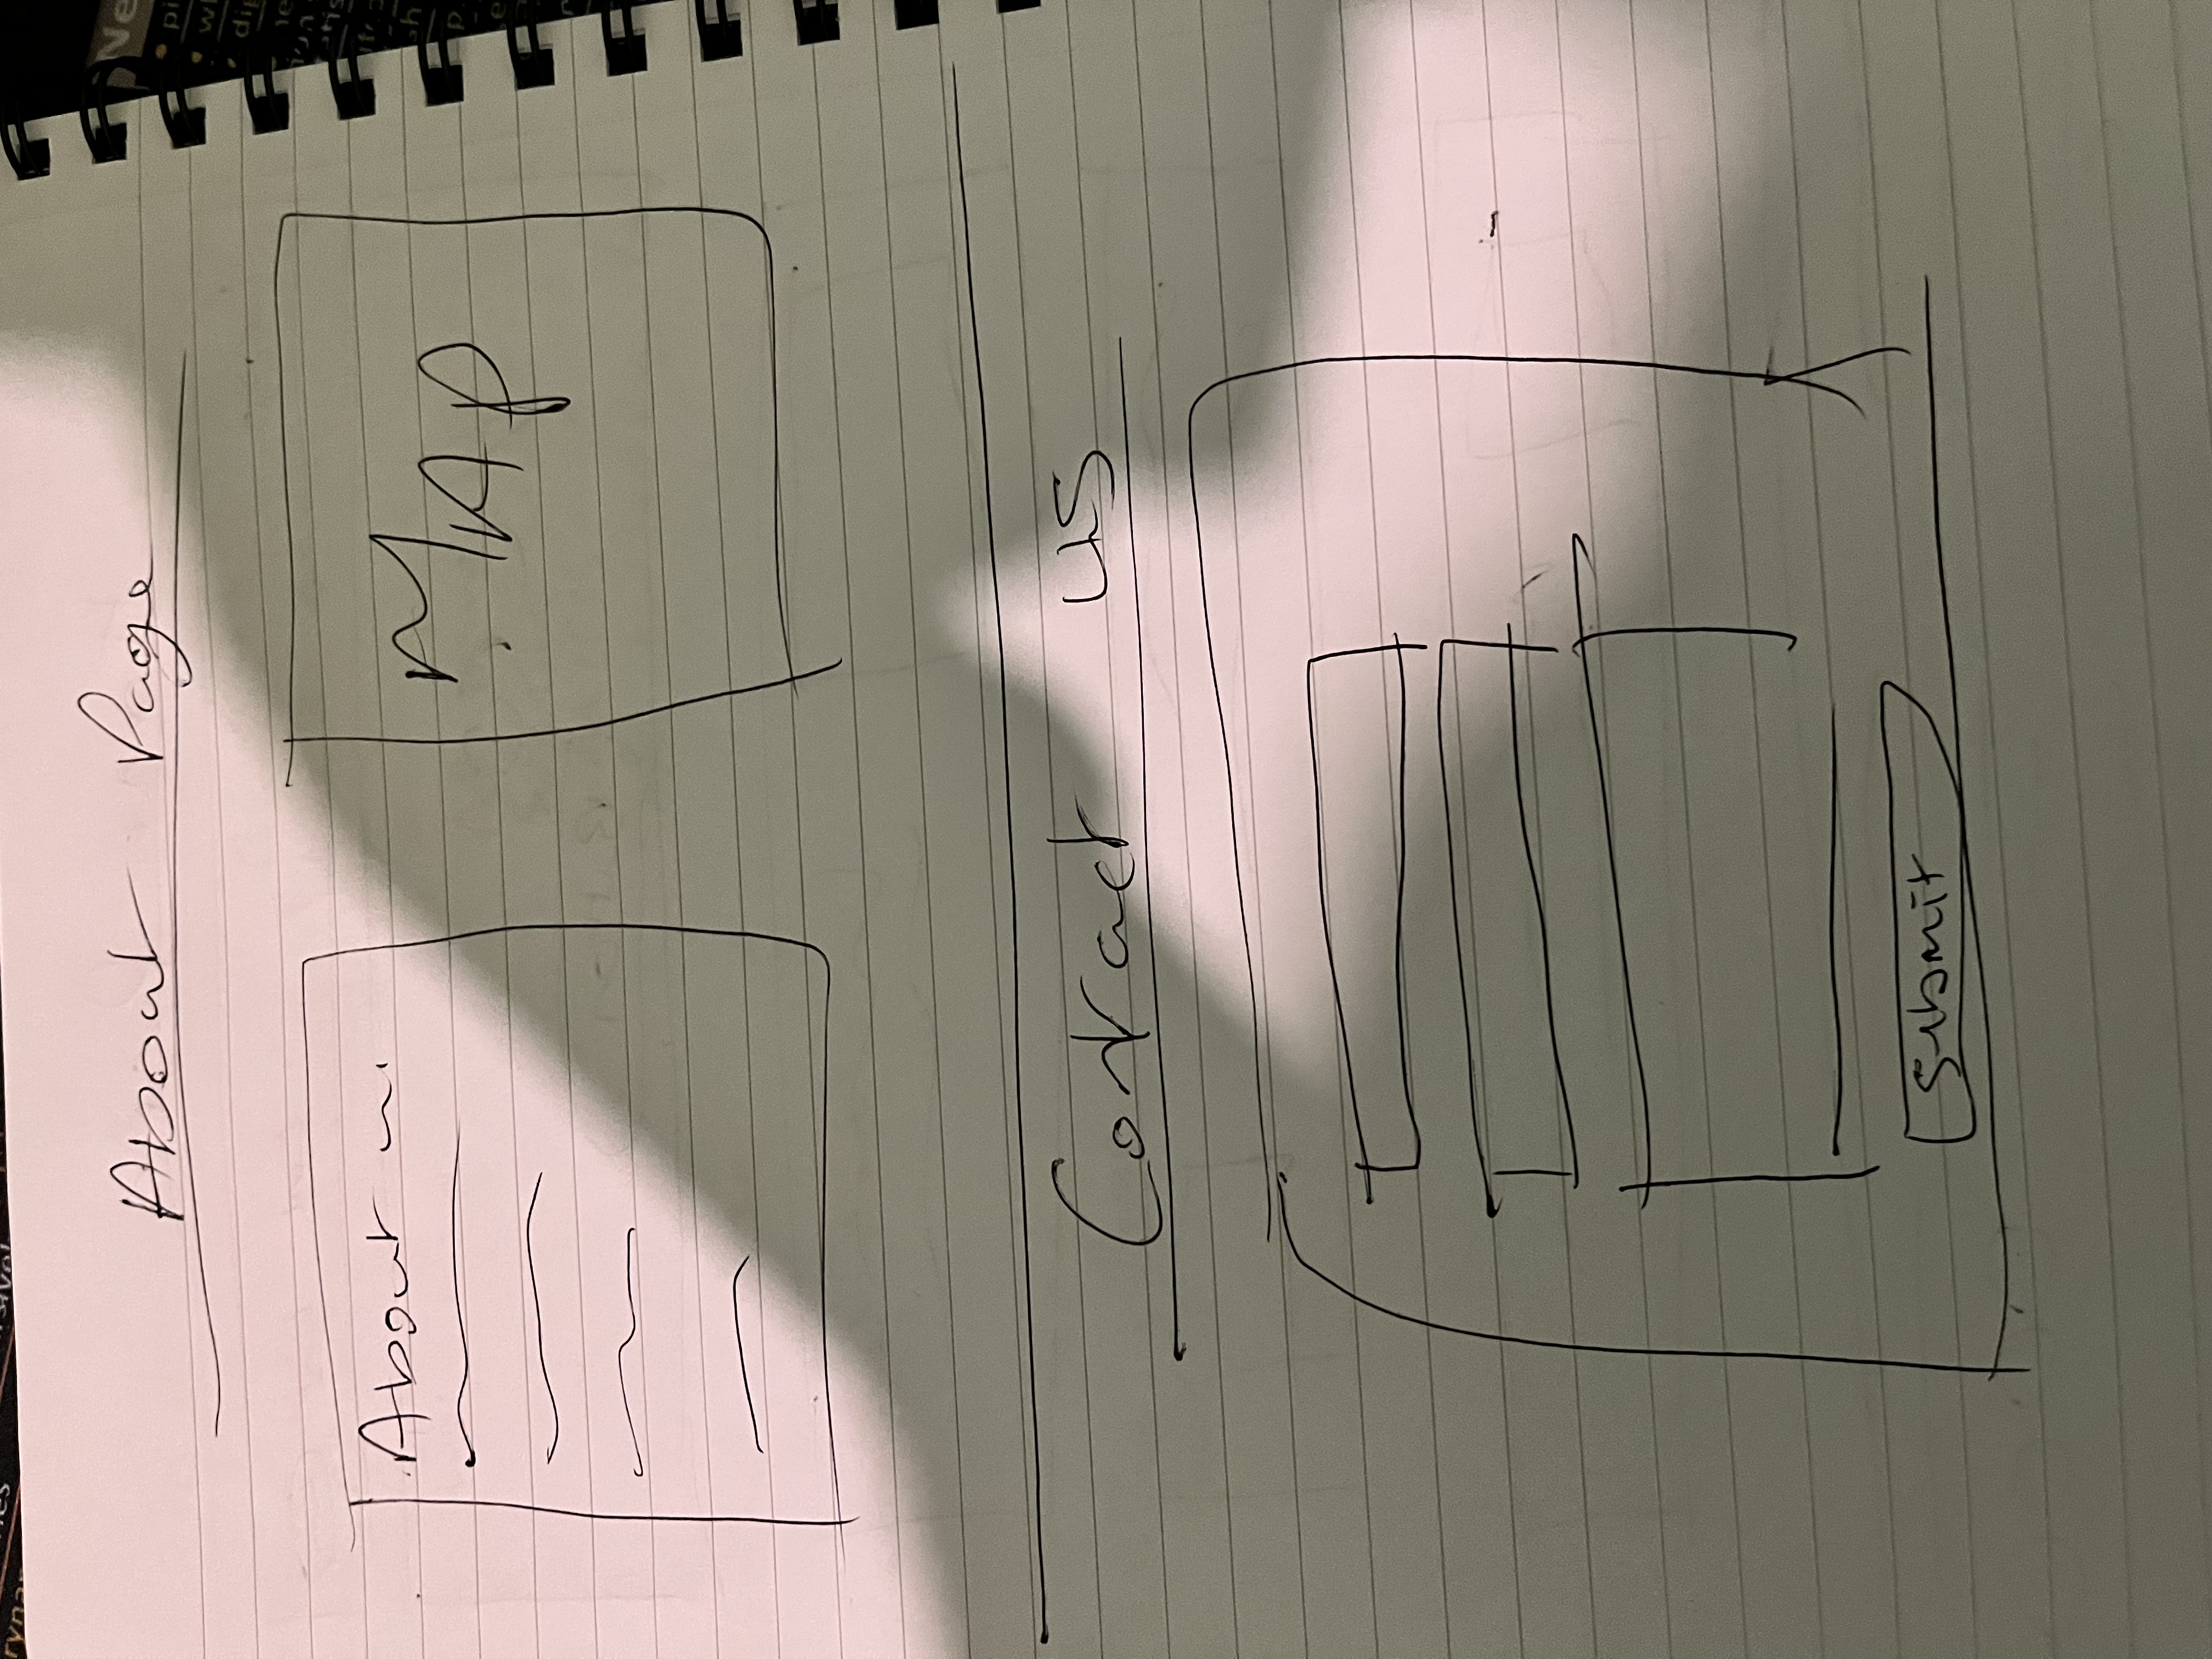 About Page
About
MAP
Contact us
Submit
Ne